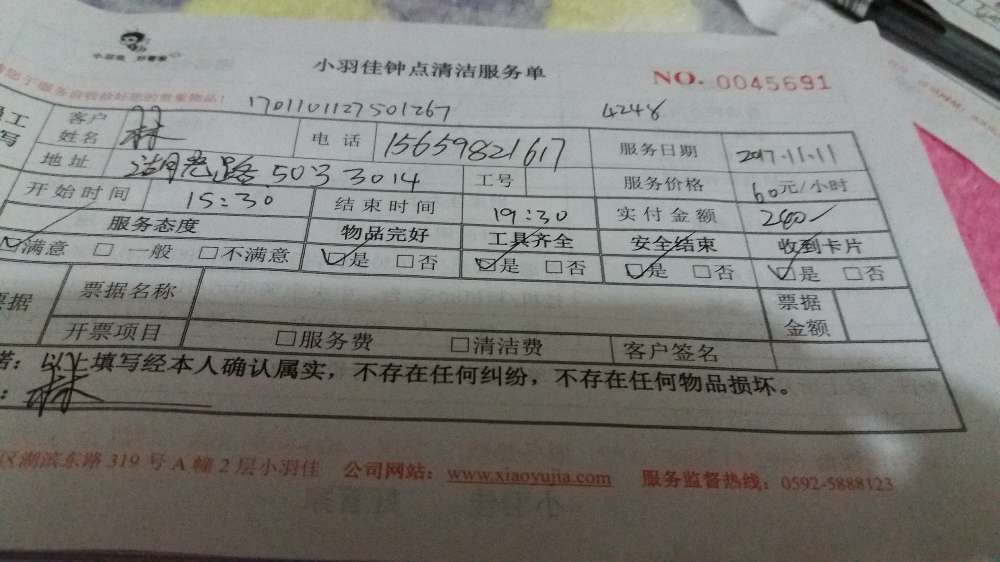 小羽佳 好管家
小羽佳钟点清洁服务单
NO. 0045691
1701101127501267 4248
客户姓名 林 电话 15659821617 服务日期 2017.11.11
地址 路503 3014 工号 服务价格 60元/小时
开始时间 15:30 结束时间 19:30 实付金额 240
服务态度 物品完好 工具齐全 安全结束 收到卡片
满意 □ 一般 □不满意 是 □否 是 □否 是 □否 是 □否
票据 票据名称 票据金额
开票项目 □服务费 □清洁费 客户签名
诺：以上填写经本人确认属实，不存在任何纠纷，不存在任何物品损坏。
林
区湖滨东路 319 号 A 幢 2 层小羽佳 公司网站：www.xiaoyujia.com 服务监督热线：0592-5888123